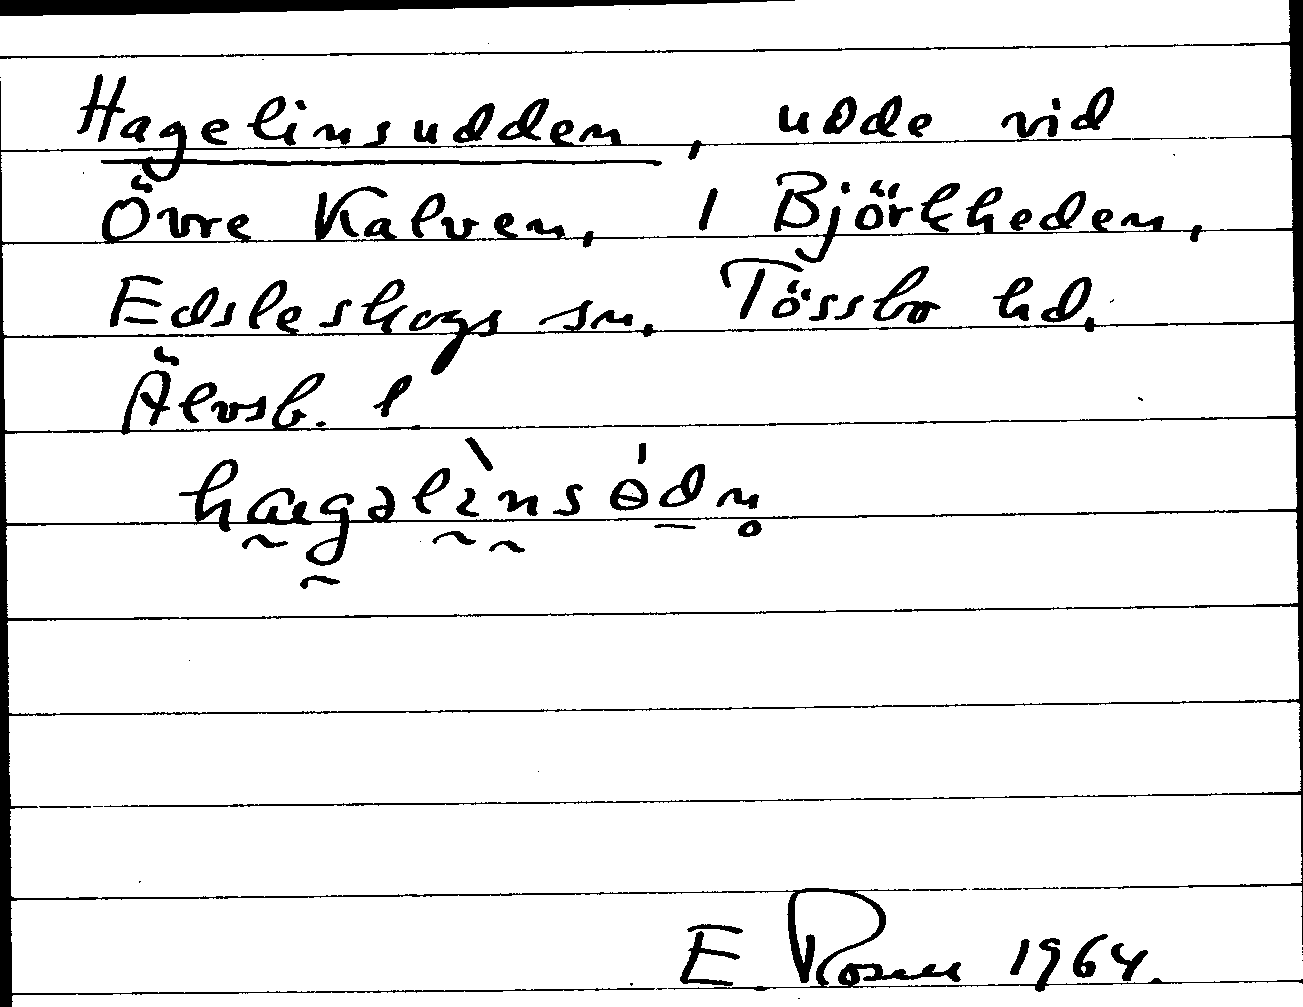 Hagelinsudden, udde vid
Övre Kalven, 1 Björkheden,
Edsleskogs sn. Tössbo hd.
Älvsb. l
hagəlìnsɵ́dn̥
E Rosen 1964.